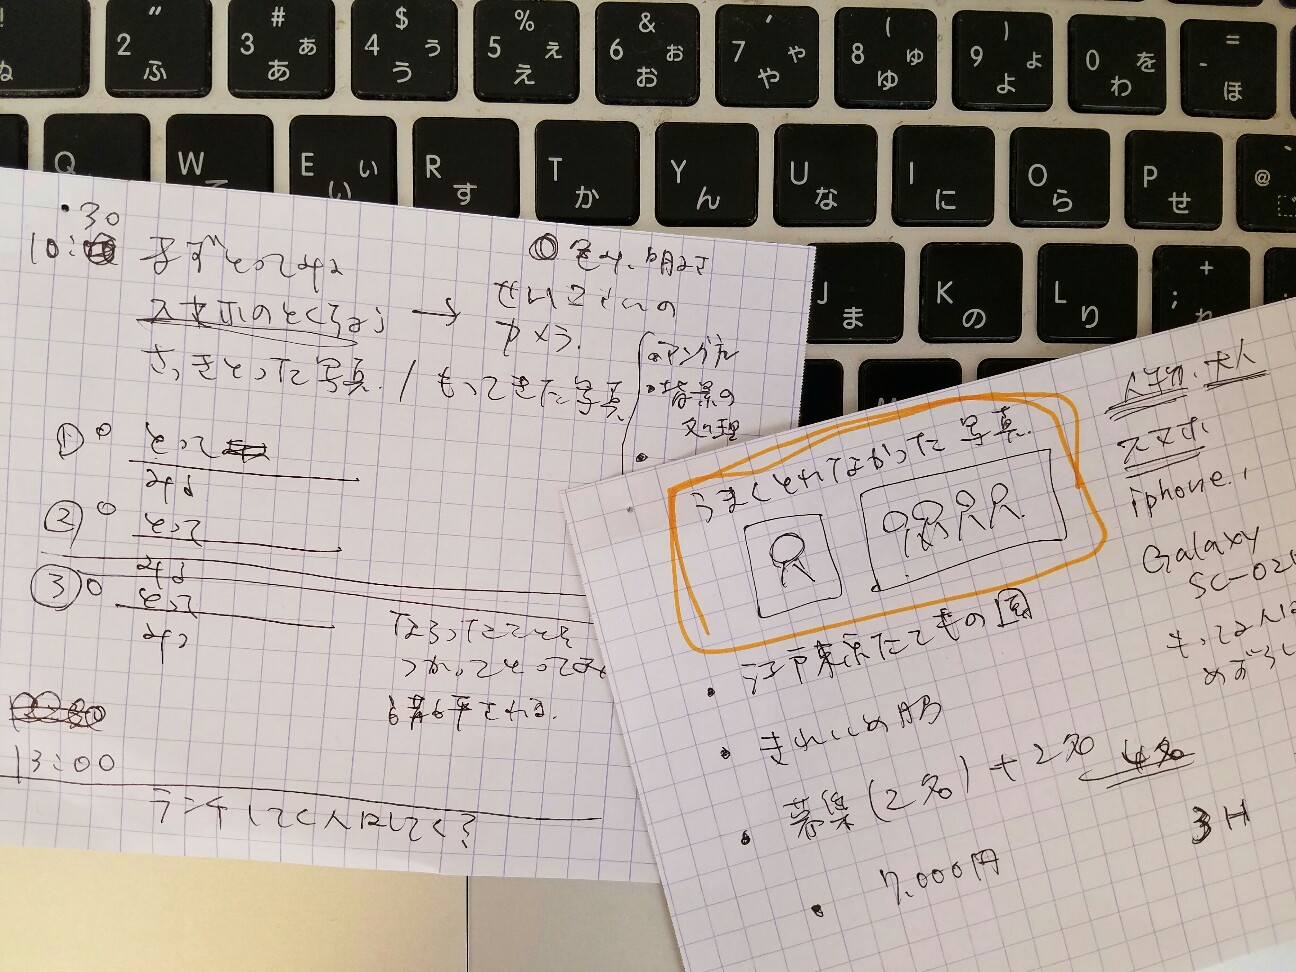 ! ぬ
" 2 ふ
# 3 ぁ あ
$ 4 ぅ う
% 5 ぇ え
& 6 ぉ お
' 7 ゃ や
( 8 ゅ ゆ
) 9 ょ よ
0 を わ
= - ほ
Q
W て
E ぃ い
R す
T か
Y ん
U な
I に
O ら
P せ
@
J ま
K の
L り
+ ; れ
・30
10:
まずとってみる
スマホのとくちょう →
せいこさいの
カメラ.
さっきとった写真. / もってきた写真
・アングル
・背景の
処理
・
① ○ とって
みる
② ○ とって
みる
③ ○ とって
みる
ならったことを
つかってとってみ
13:00
ランチしてく人はしてく?
うまくとれてなかった写真.
・江戸東京たてもの園
・きれいめ
・募集(2名)+2名 4名
・7.000円
3H
大人
スマホ
iphone,
Galaxy
SC-02
もってる人は
めずらし